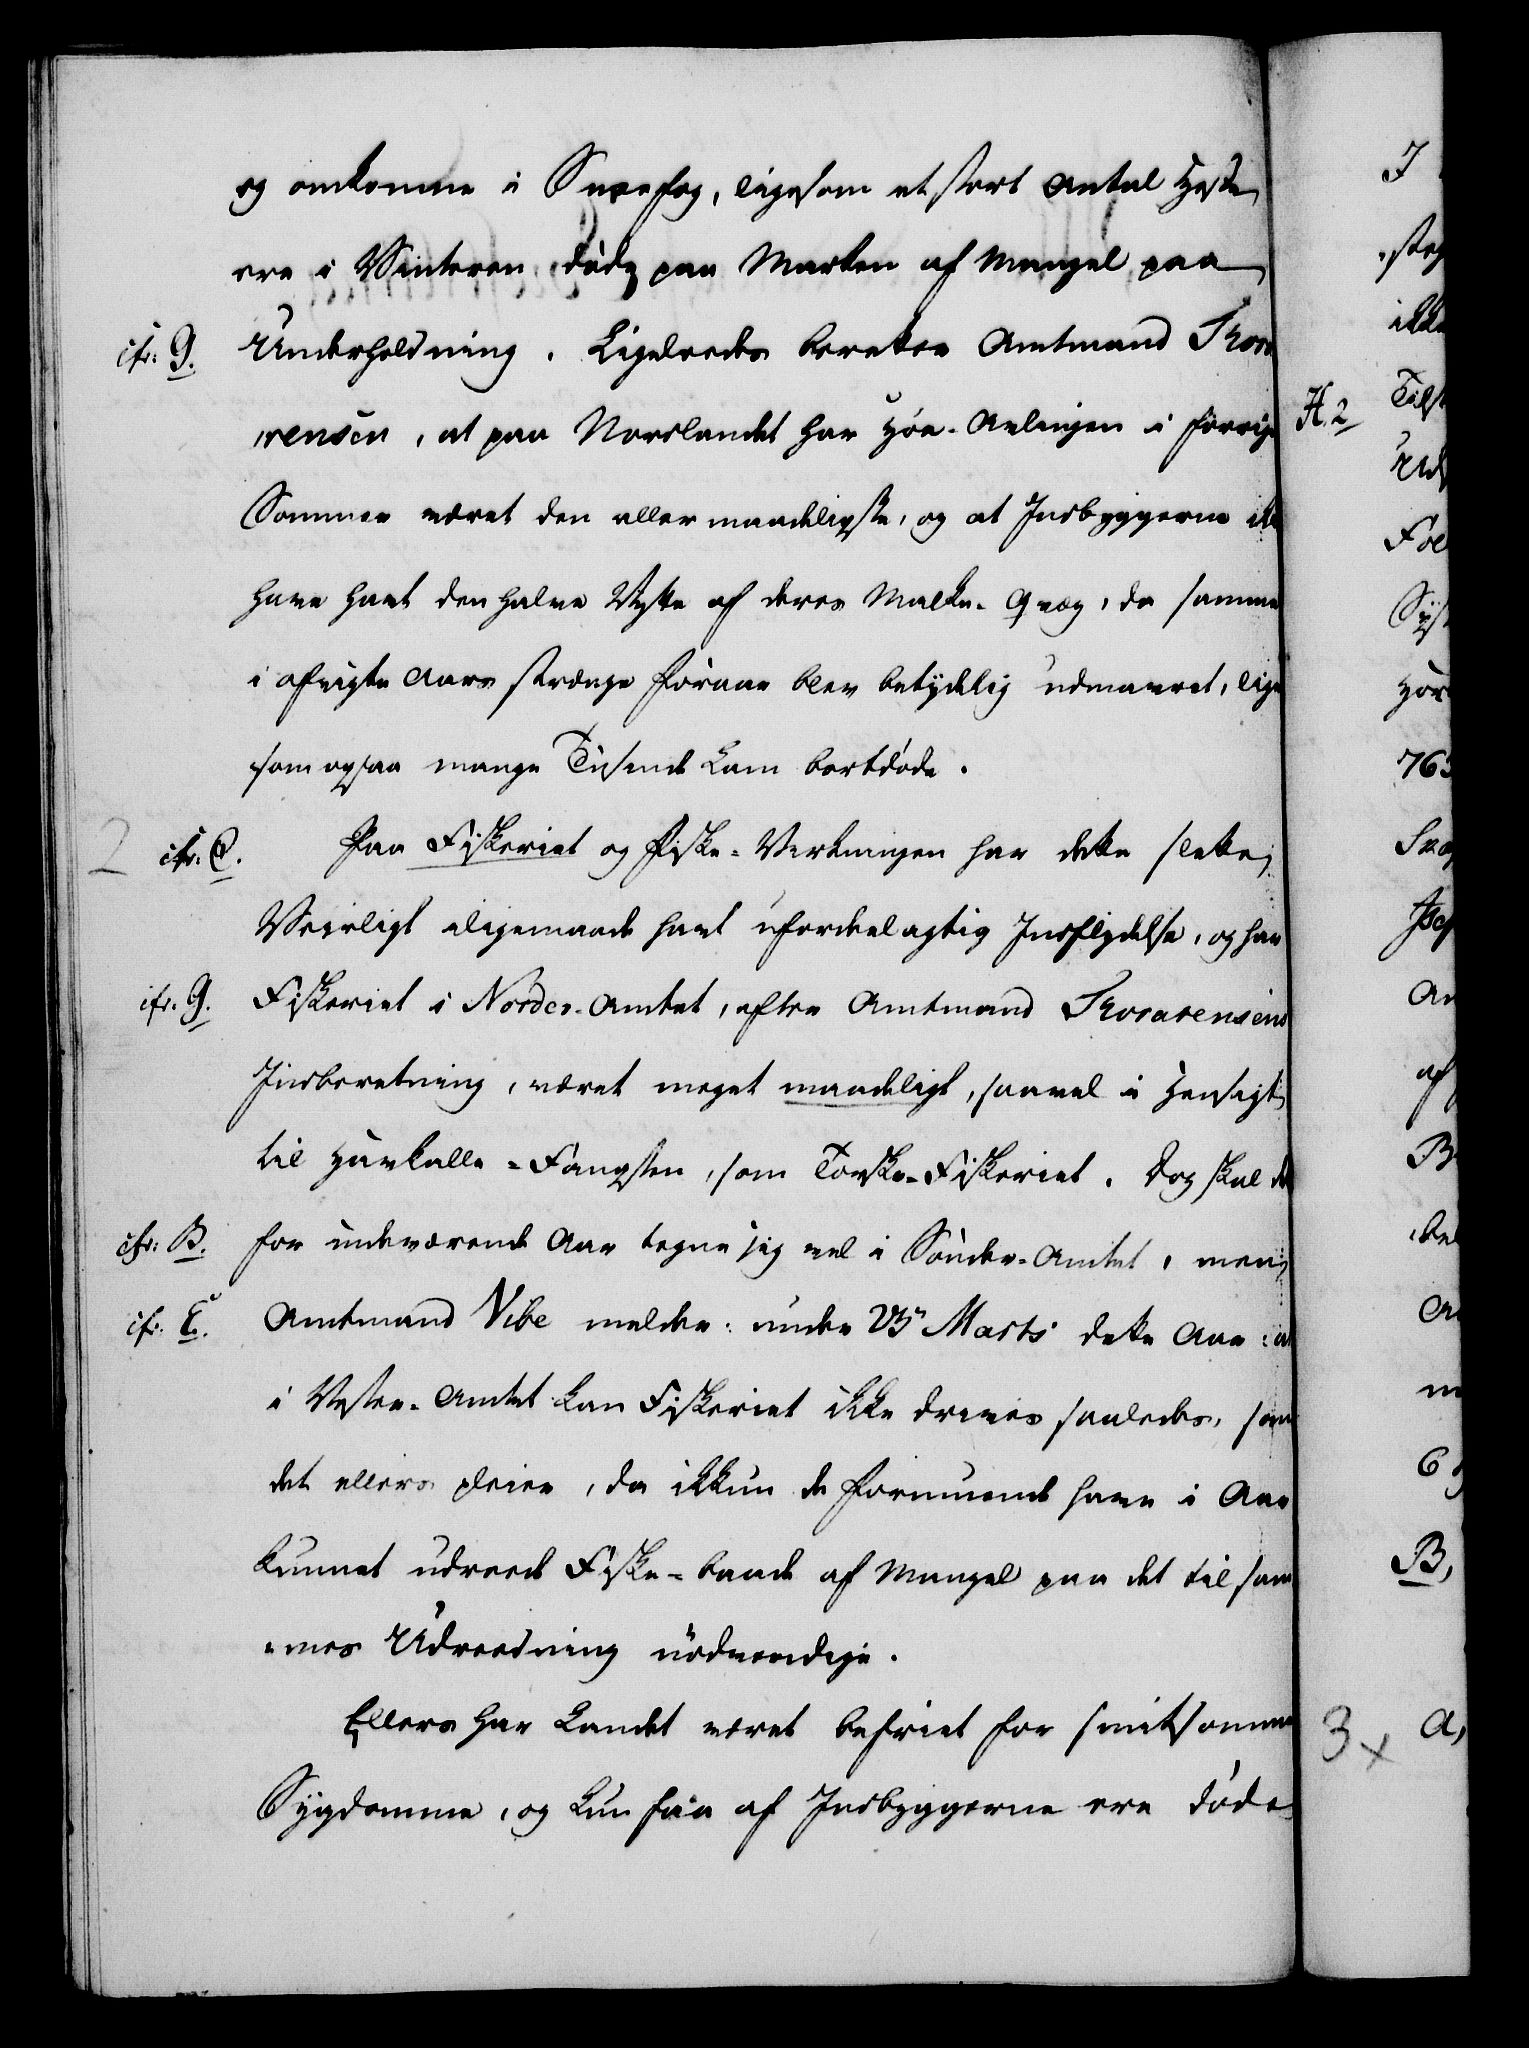 og omkomne i Sneefog, ligesom et stort Antal Heste
ere i Vinteren døde paa Marken af Mangel paa
cfr: G. Underholdning. Ligeledes beretter Amtmand Thora
rensen, at paa Norslandet har Høe-Avlingen i forrige
Sommer været den aller maadeligste, og at Indbyggerne ikke
have havt den halve Nytte af deres Malke-Qvæg, da samme
i afvigte Aars strænge Foraar blev betydelig udmavret, lige
som ogsaa mange Tusende Lam bortdøde.
2 cfr. C. Paa Fiskeriet og Fiske-Virkningen har dette slette
Veirligt iligemaade havt ufordeelagtig Indflydelse, og har
cfr. G. Fiskeriet i Norder-Amtet, efter Amtmand Thorarensens
Indberetning, været meget maadeligt, saavel i Hensigt
til Havkalle-Fangsten, som Torske-Fiskeriet. Dog skal det
cfr. B. for indeværende Aar tegne sig vel i Sønder-Amtet, men
cfr. E. Amtmand Vibe melder under Marts dette Aar: at
i Vester-Amtet kan Fiskeriet ikke drives saaledes, som
det ellers pleier, da ikkun de formuende have i Aar
kunnet udreede Fiske-baade af Mangel paa det til sam
mes Udreedning nødvendige.
Ellers har Landet været befriet for smitsomme
Sygdomme, og kun faa af Indbyggerne ere døde
H. 2
ikke
763
B,
3 x